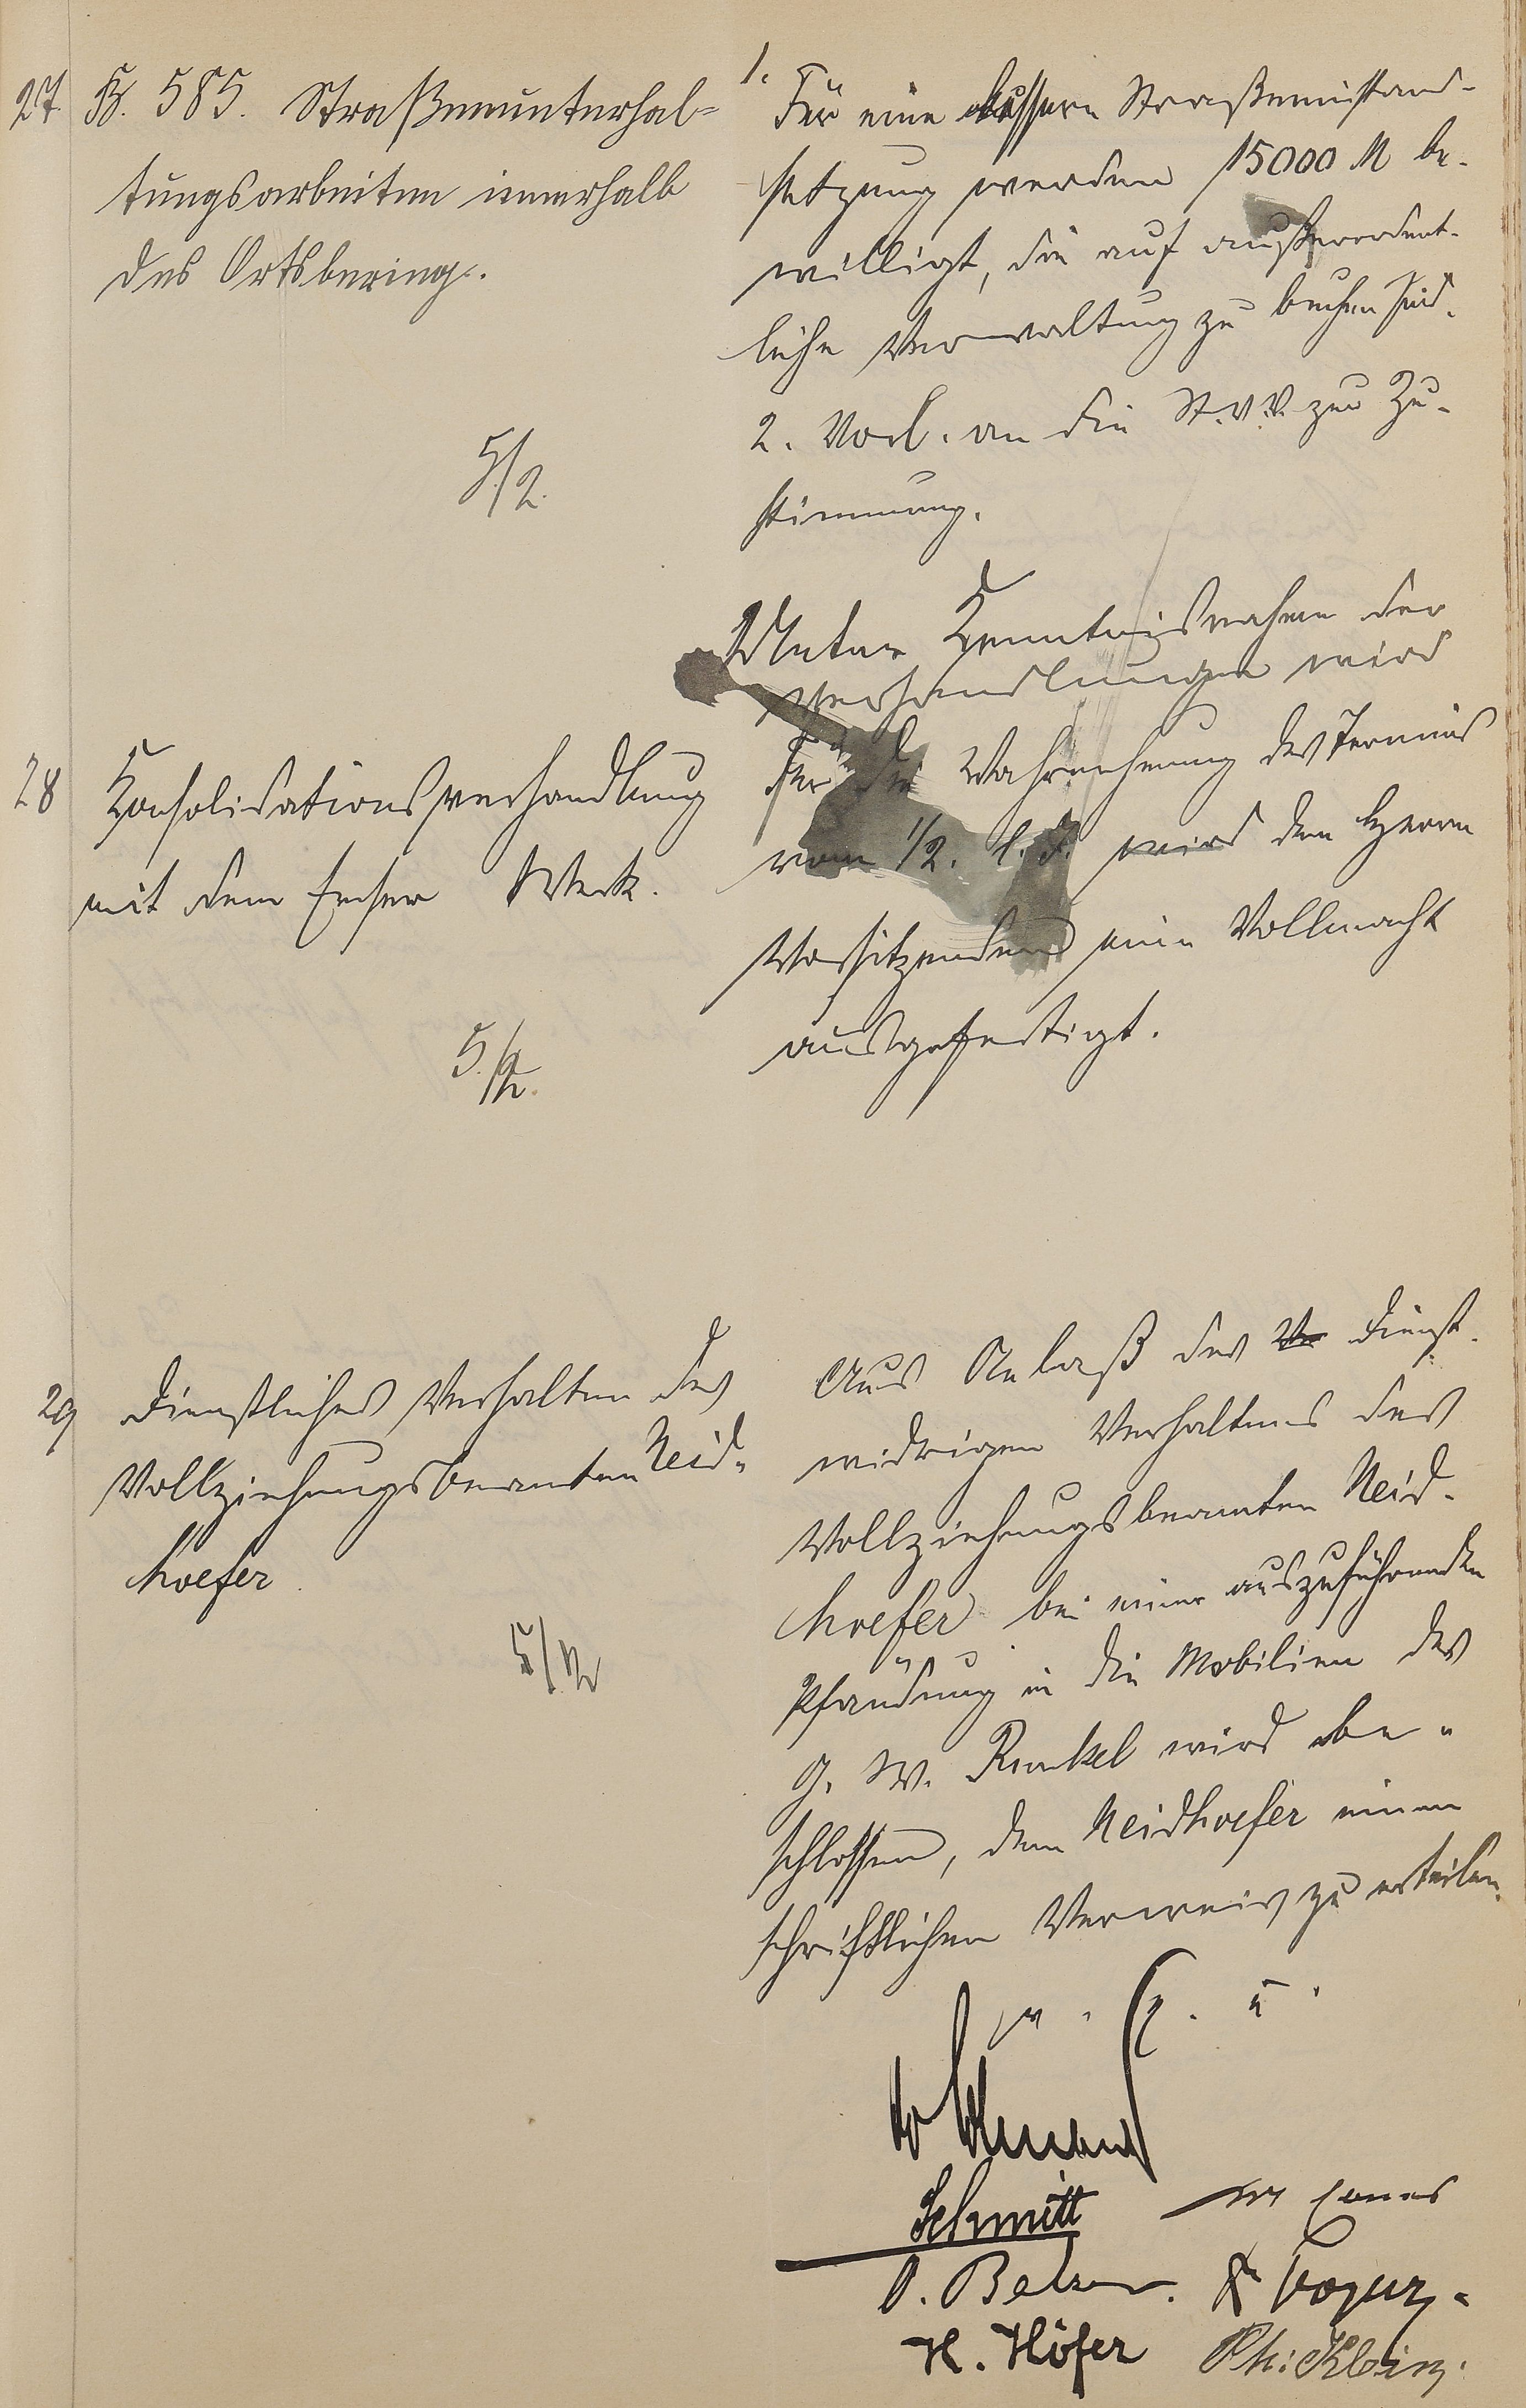 27. B. 585. Straßenunterhal-
tungsarbeiten innerhalb
des Ortsberings.
5./2.
1. Für eine bessere Straßeninstand-
setzung werden 15000 M be-
willigt, die auf außerordent-
liche Verwaltung zu buchen sind.
2. Vorl. an die St.V.V. zur Zu-
stimmung.
28 Konsolidationsverhandlung
mit dem Emser Werk.
5./2.
Unter Kenntnisnahme der
Verhandlungen wird
für die Wahrnehmung des Termins
vom 1/2. l. J. wird dem Herrn
Vorsitzenden eine Vollmacht
ausgefertigt.
29 Dienstliches Verhalten des
Vollziehungsbeamten Neid-
hoefer
5/2
Aus Anlaß des Ve dienst-
widrigen Verhaltens des
Vollziehungsbeamten Neid-
hoefer bei einer auszuführenden
Pfändung in die Mobilien des
G. W. Runkel wird be-
schlossen, dem Neidhoefer einen
schriftlichen Verweis zu erteilen.
v. g. u.
Schmitt
O. Balzer.
H. Höfer Ph: Klein.